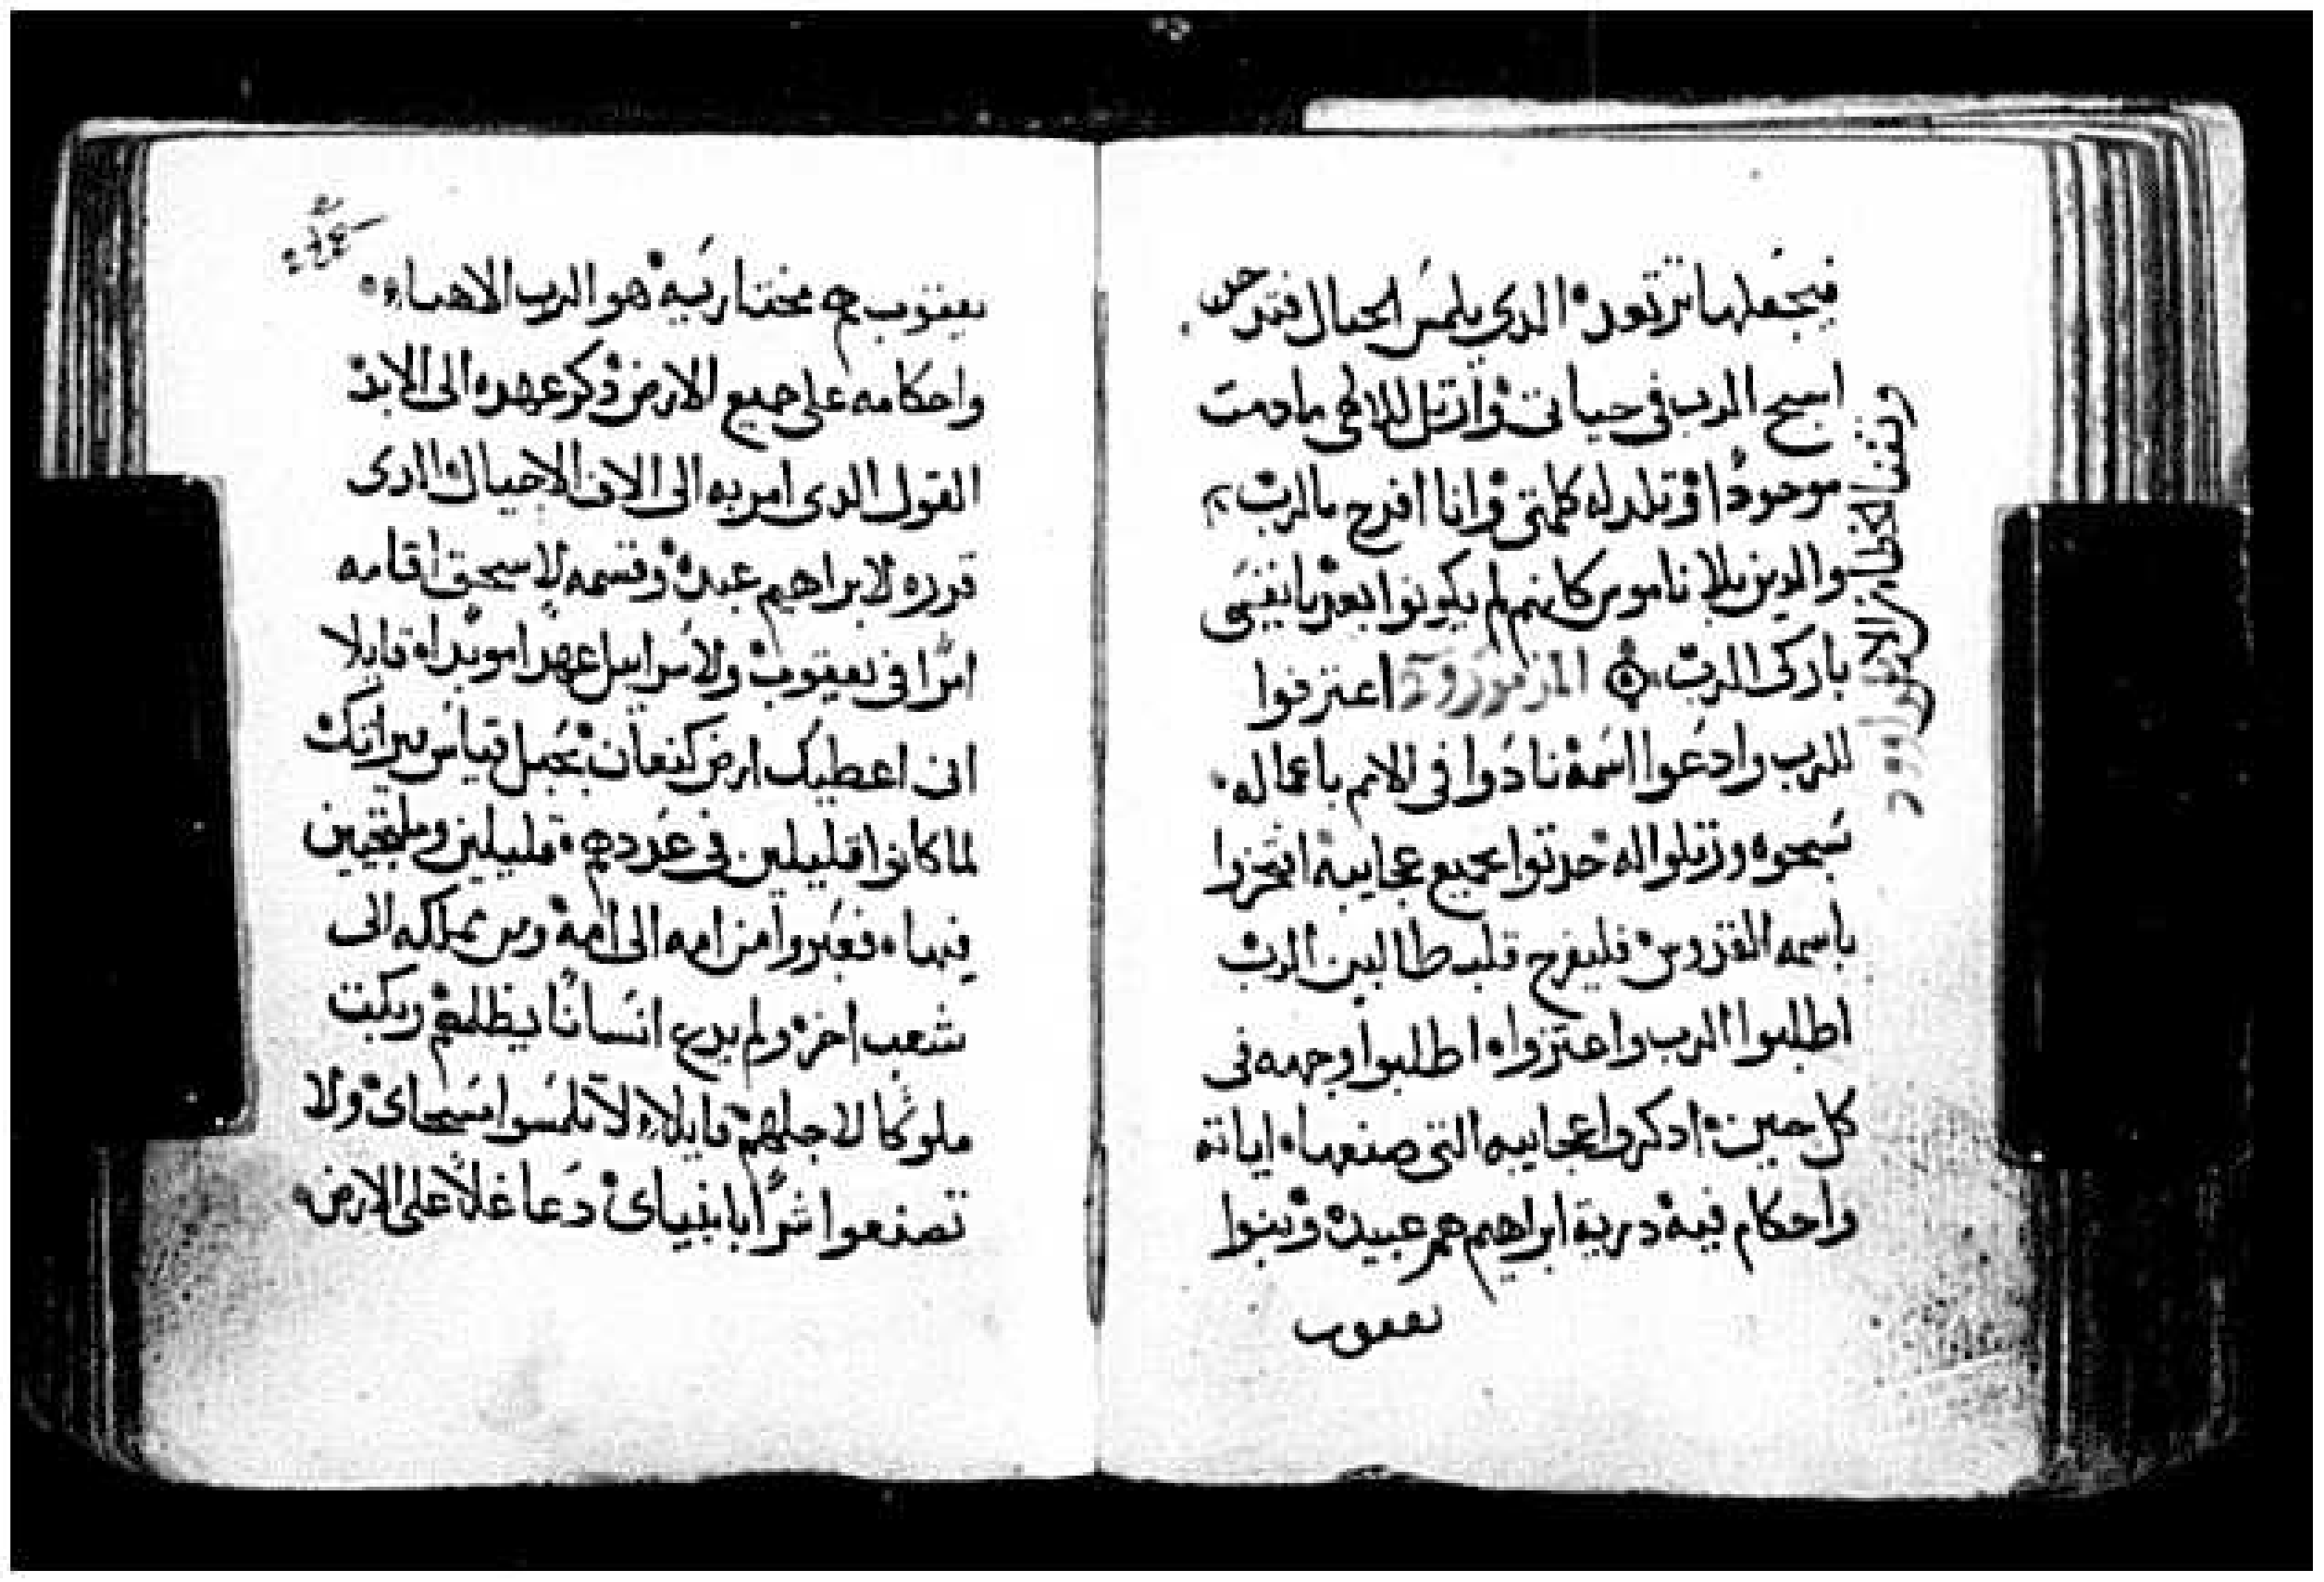 فيجعلها ترتعد الذي يلمس الجبال فتدخن
اسبح الرب في حياتي وارتل لالاهي مادمت
موجودًا وتلد له كلمتي وانا افرح بالرب
والدين بلا ناموس كانهم لم يكونوا بعد يا نفسي
باركى الرب المزمور اعترفوا
للرب وادعوا اسمه نادوا في الامم باعماله
سبحوه ورتلوا له حدثوا بجميع عجايبه افتخروا
باسمه القدوس فليفرح قلب طالبين الرب
اطلبوا الرب واعتزوا اطلبوا وجهه في
كل حين ادكروا عجايبه التي صنعها اياته
واحكام فيه درية ابراهيم هم عبيده وبنوا
يعقوب
يعقوب هم مختاريه هو الرب الاهنا
واحكامه على جميع الارض دكر عهده الى الابد
القول الدى امر به الى الاف الاجيال الدى
قرره لابراهيم عبده وقسمه لاسحق اقامه
امرًا في يعقوب ولاسراييل عهدا موبدا قايلا
اني اعطيك ارض كنعان حبل قياس ميراتك
لما كانوا قليلين في عددهم قليلين وملتجيين
فيها فعبروا من امه الى امة ومن مملكه الى
شعب اخر ولم يدع انسانًا يظلمهم وبكت
ملوكًا لاجلهم قايلا لا تلمسوا مسحاى ولا
تصنعوا شرًا بانبياى دعا غلا على الارض